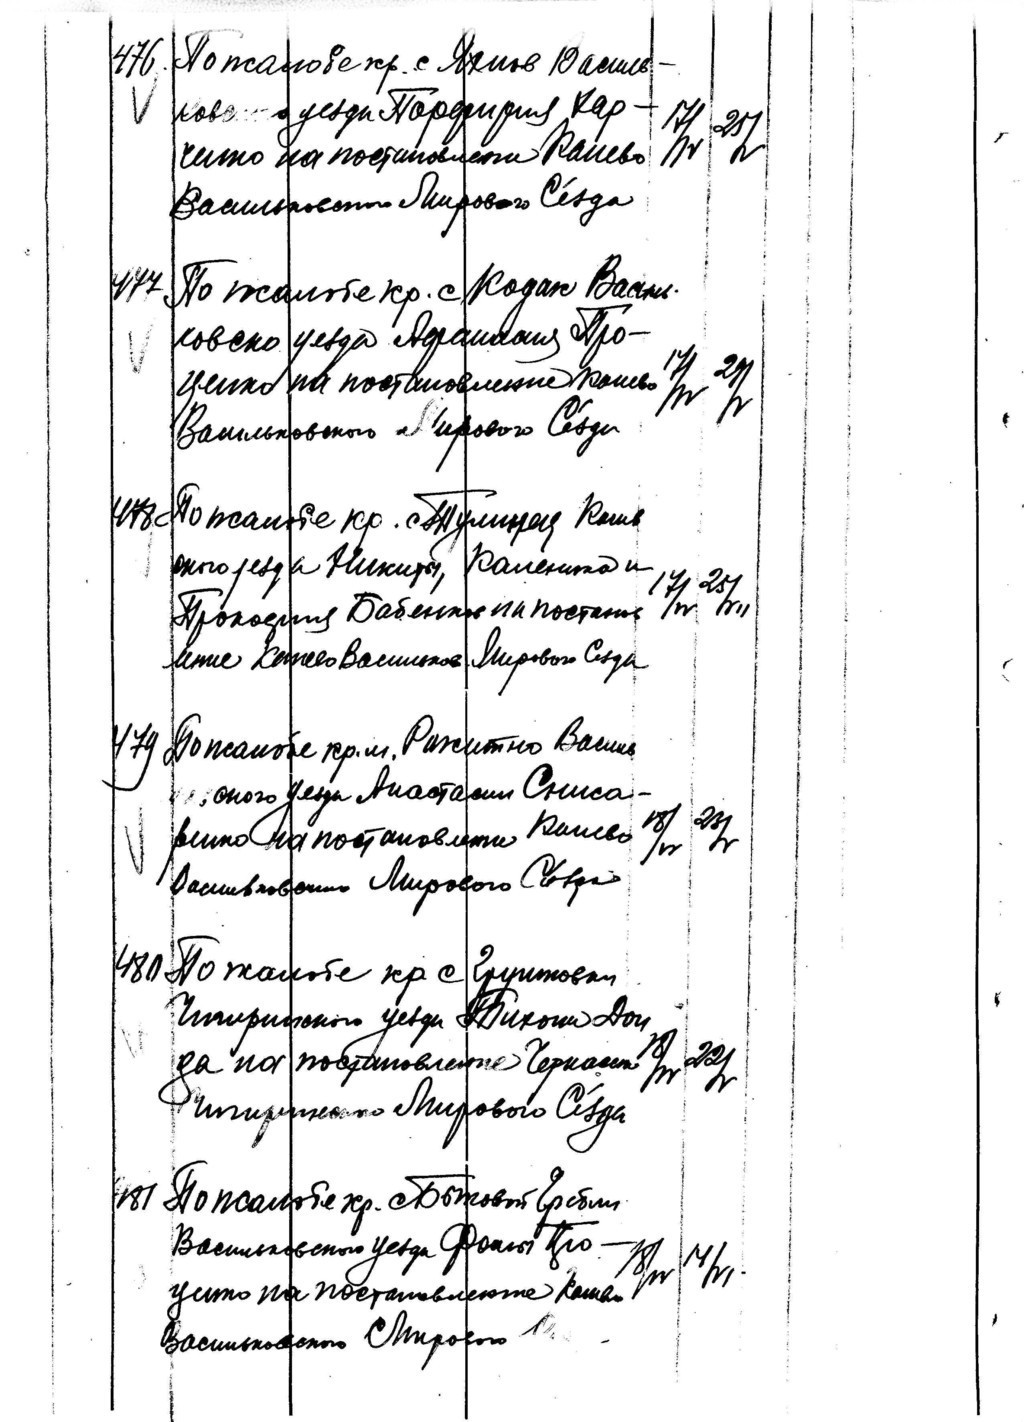 476. По жалобе кр. с. Яхнов Василь-
ковс о уезда Порфирия Хар-
ченко на постановление Канево 17/IV 25/V
Васильковского Мирового Сѐзда
477 По жалобе кр. с Кодак Василь.
ковско уезда Афанасия Про-
ценко на постановление Канево 17/IV 29/V
Васильковского Мирового Сѐзда
478 По жалобе кр. с Тулинец Канев
ского уезда Никиты, Каленика и
Прокофия Бабенков на постанов 17/IV 25/VII
ление Канево Васильков. Мирового Сезда
479 По жалобе кр. м. Ракитно Василь
ского уезда Анастасии Сниса-
ренко на постановление Канево 18/IV 23/V
Васильковского Мирового Съезда
480 По жалобе кр с Грушковки
Чигиринского уезда Тихона Дон
да на постановление Черкасск 18/IV 22/V
Чигиринского Мирового Сѐзда
481 По жалобе кр. с Гребли
Васильковского уезда Фомы Про-
ценко на постановление Канево 18/IV 14/VI.
Васильковского Мирового